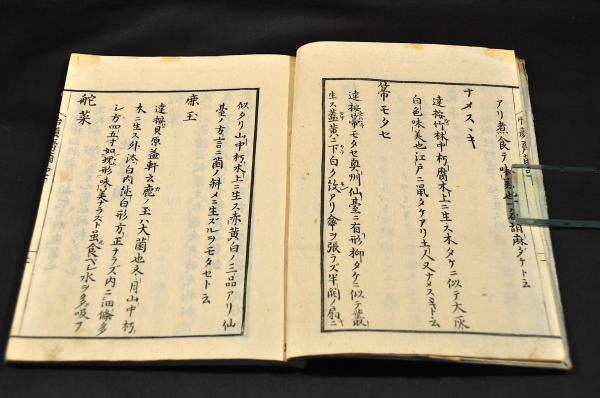 アリ煮食テ味美也一名胡麻ダケト云
ナメスヽキ
達按竹林中朽腐木上ニ生ス木タケニ似テ大灰
白色味美也江戸ニ鼠タケアリ土人又ナメスヽキト云
箒モタセ
達按箒モタセ奥州仙臺ニ有形柳タケニ似テ叢
生ス蓋黄ニ下白ク汶アリ傘ヲ張ラズ半開ノ扇ニ
似タリ山中朽木上ニ生ス赤黄白ノ三品アリ仙
臺ノ方言ニ菌ノ斜メニ生ズルヲモタセト云
鹿玉
達按貝原益軒云鹿ノ玉ハ大菌也冬月山中朽
木ニ生ス外淡白内純白形方正ナラズ内ニ油條多
シ方四五寸如塊形味美ナラスト虽食ベシ水ヲ多吸フ
舵菜